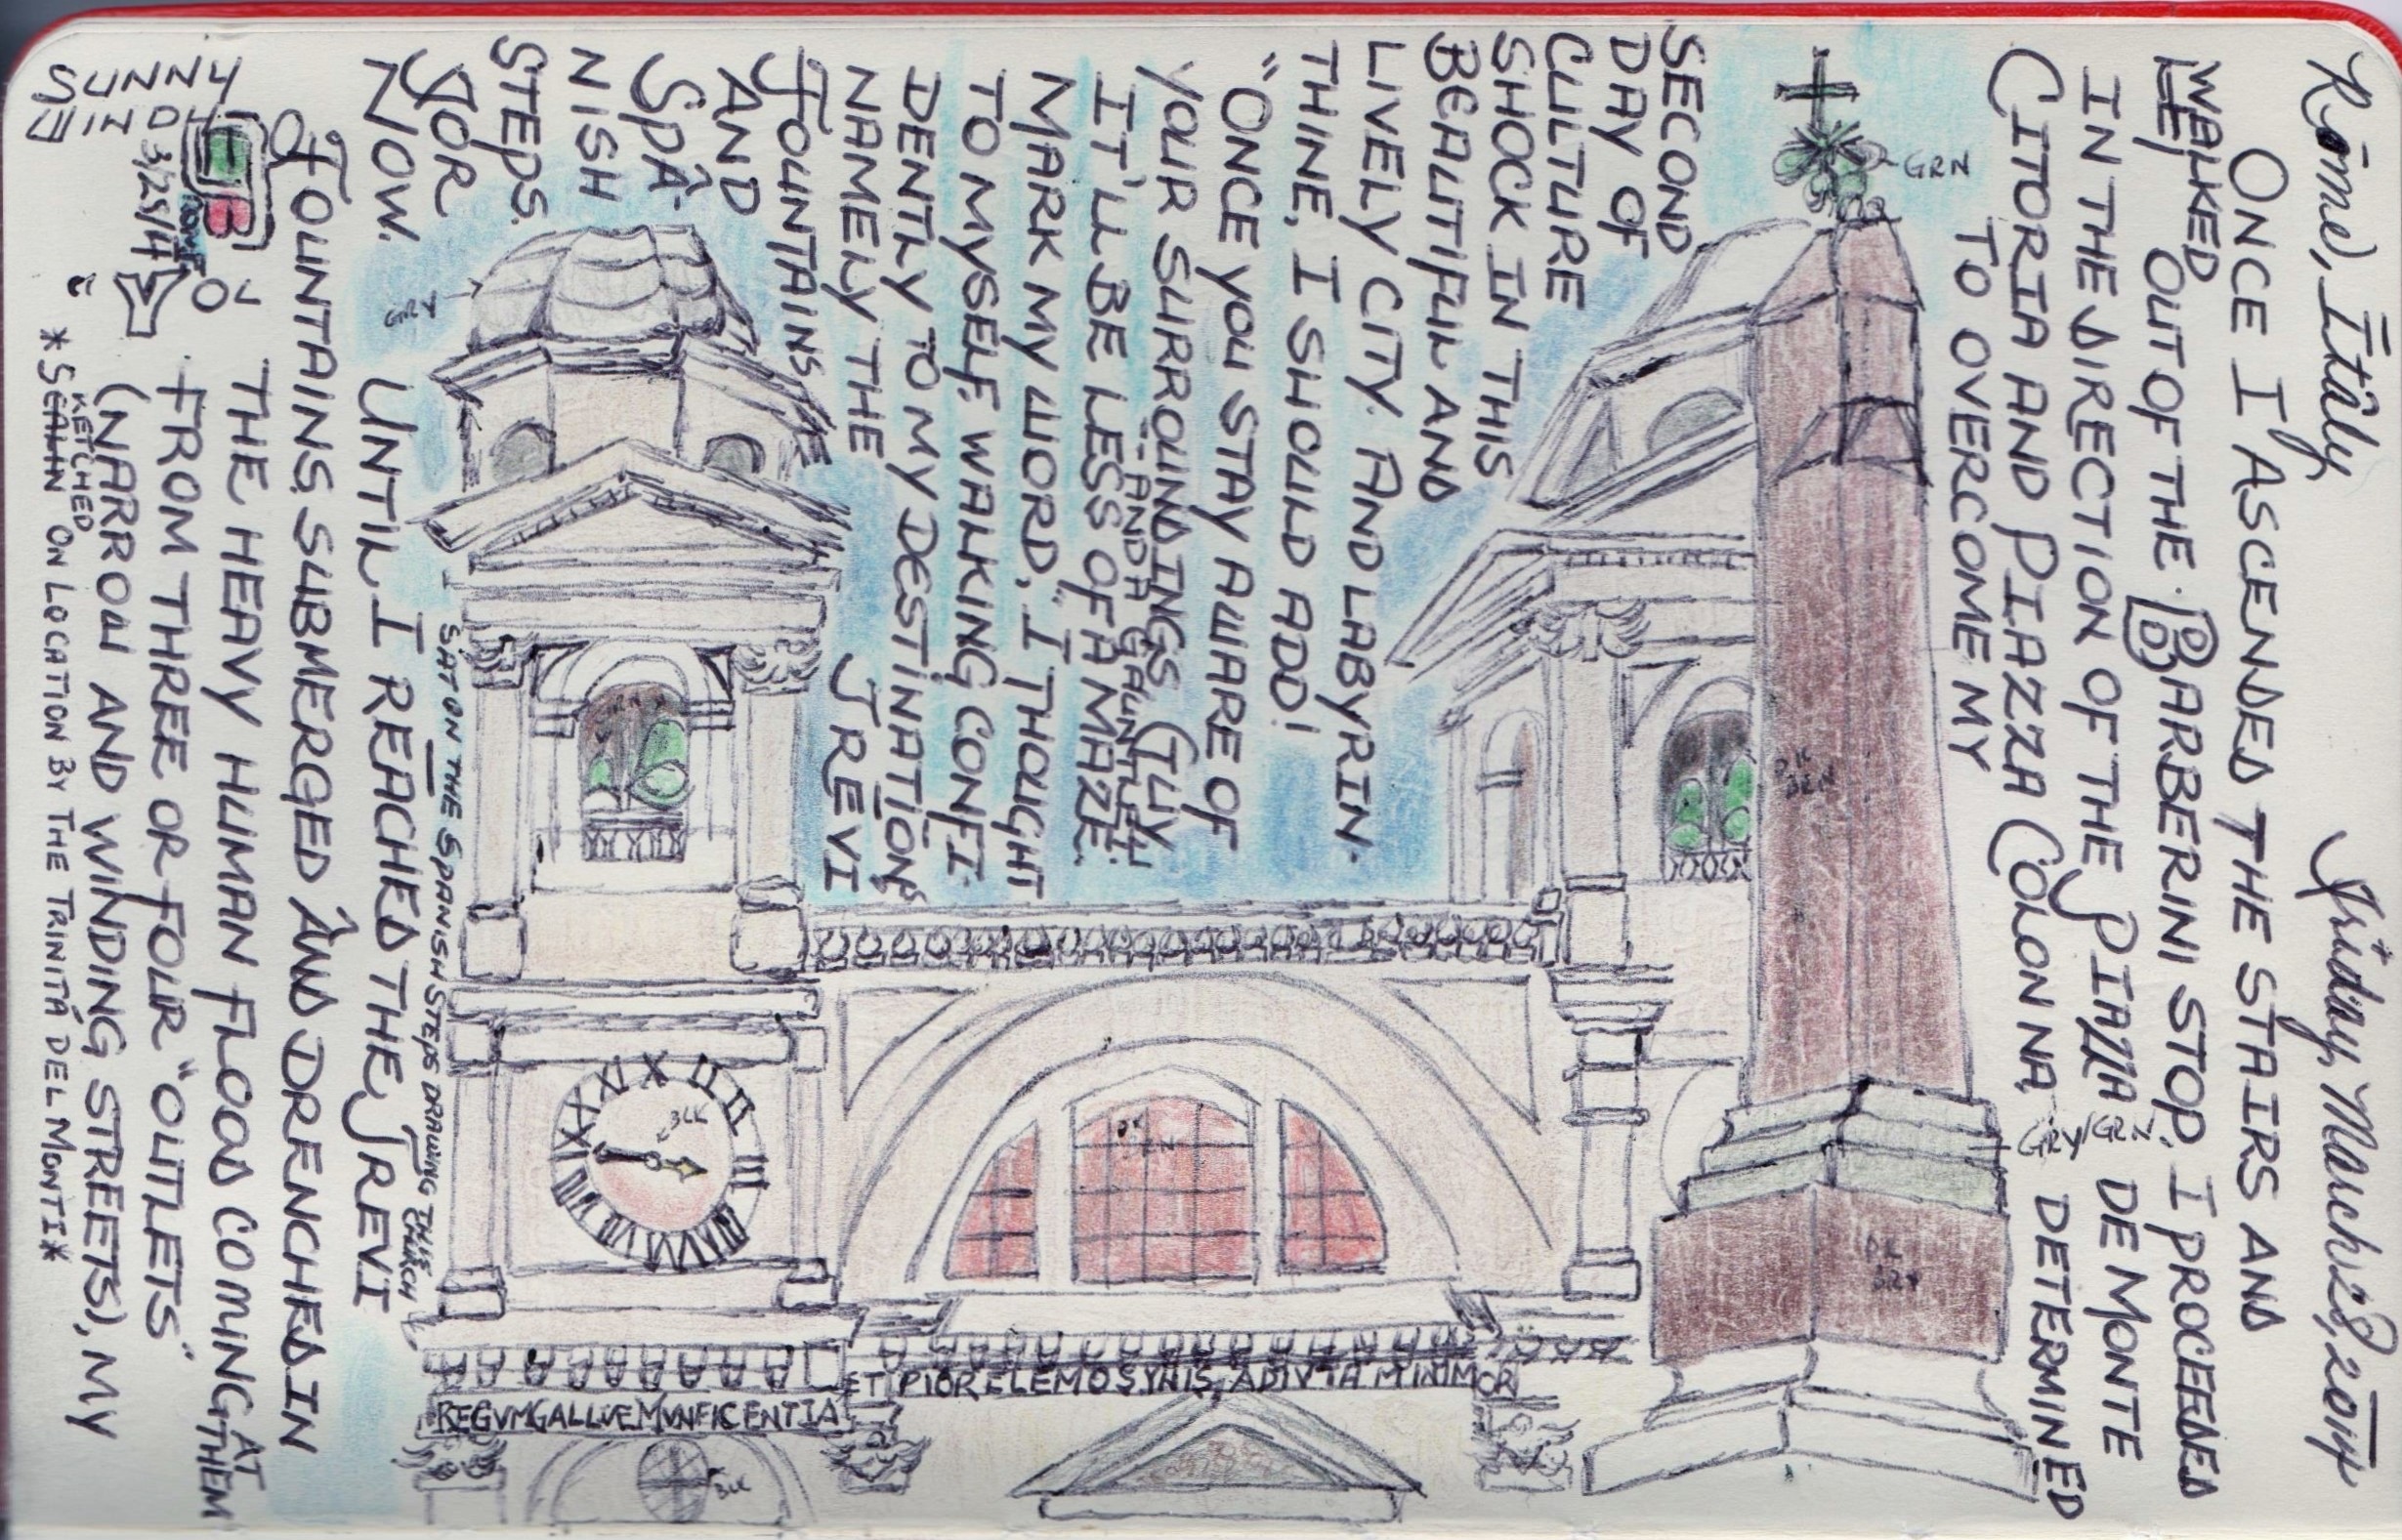 Rome, Italy Friday, March 28, 2014
ONCE I ASCENDED THE STAIRS AND
WALKED OUT OF THE BARBERINI STOP, I PROCEEDED
IN THE DIRECTION OF THE PIAZZA DE MONTE
CITORIA AND PIAZZA COLONNA, DETERMINED
TO OVERCOME MY
SECOND
DAY OF
CULTURE
SHOCK IN THIS
BEAUTIFUL AND
LIVELY CITY. AND LABYRIN-
THINE, I SHOULD ADD!
"ONCE YOU STAY AWARE OF
YOUR SURROUNDINGS, GUY,
IT'LL BE LESS OF A MAZE.
- AND A GAUNTLET!
MARK MY WORD," I THOUGHT
TO MYSELF, WALKING CONFI-
DENTLY TO MY DESTINATIONS
NAMELY THE TREVI
FOUNTAINS
AND
SPA-
NISH
STEPS.
FOR
NOW.
UNTIL I REACHED THE TREVI
FOUNTAINS. SUBMERGED AND DRENCHED IN
THE HEAVY HUMAN FLOOD COMING AT THEM
FROM THREE OR FOUR "OUTLETS"
(NARROW AND WINDING STREETS), MY
*SKETCHED ON LOCATION BY THE TRINITÁ DEL MONTI*
SAT ON THE SPANISH STEPS DRAWING THIS CHURCH
GRN
GRY
DK
BRN
GRY/GRN
BLK
DK
BLK
XI XII I II III
ET PIOR ELEMOSYNIS ADIVTA MINIMOR
REGVM GALLIAE MVNFICENTIA
SUNNY
WINDY
3/28/14
ROME